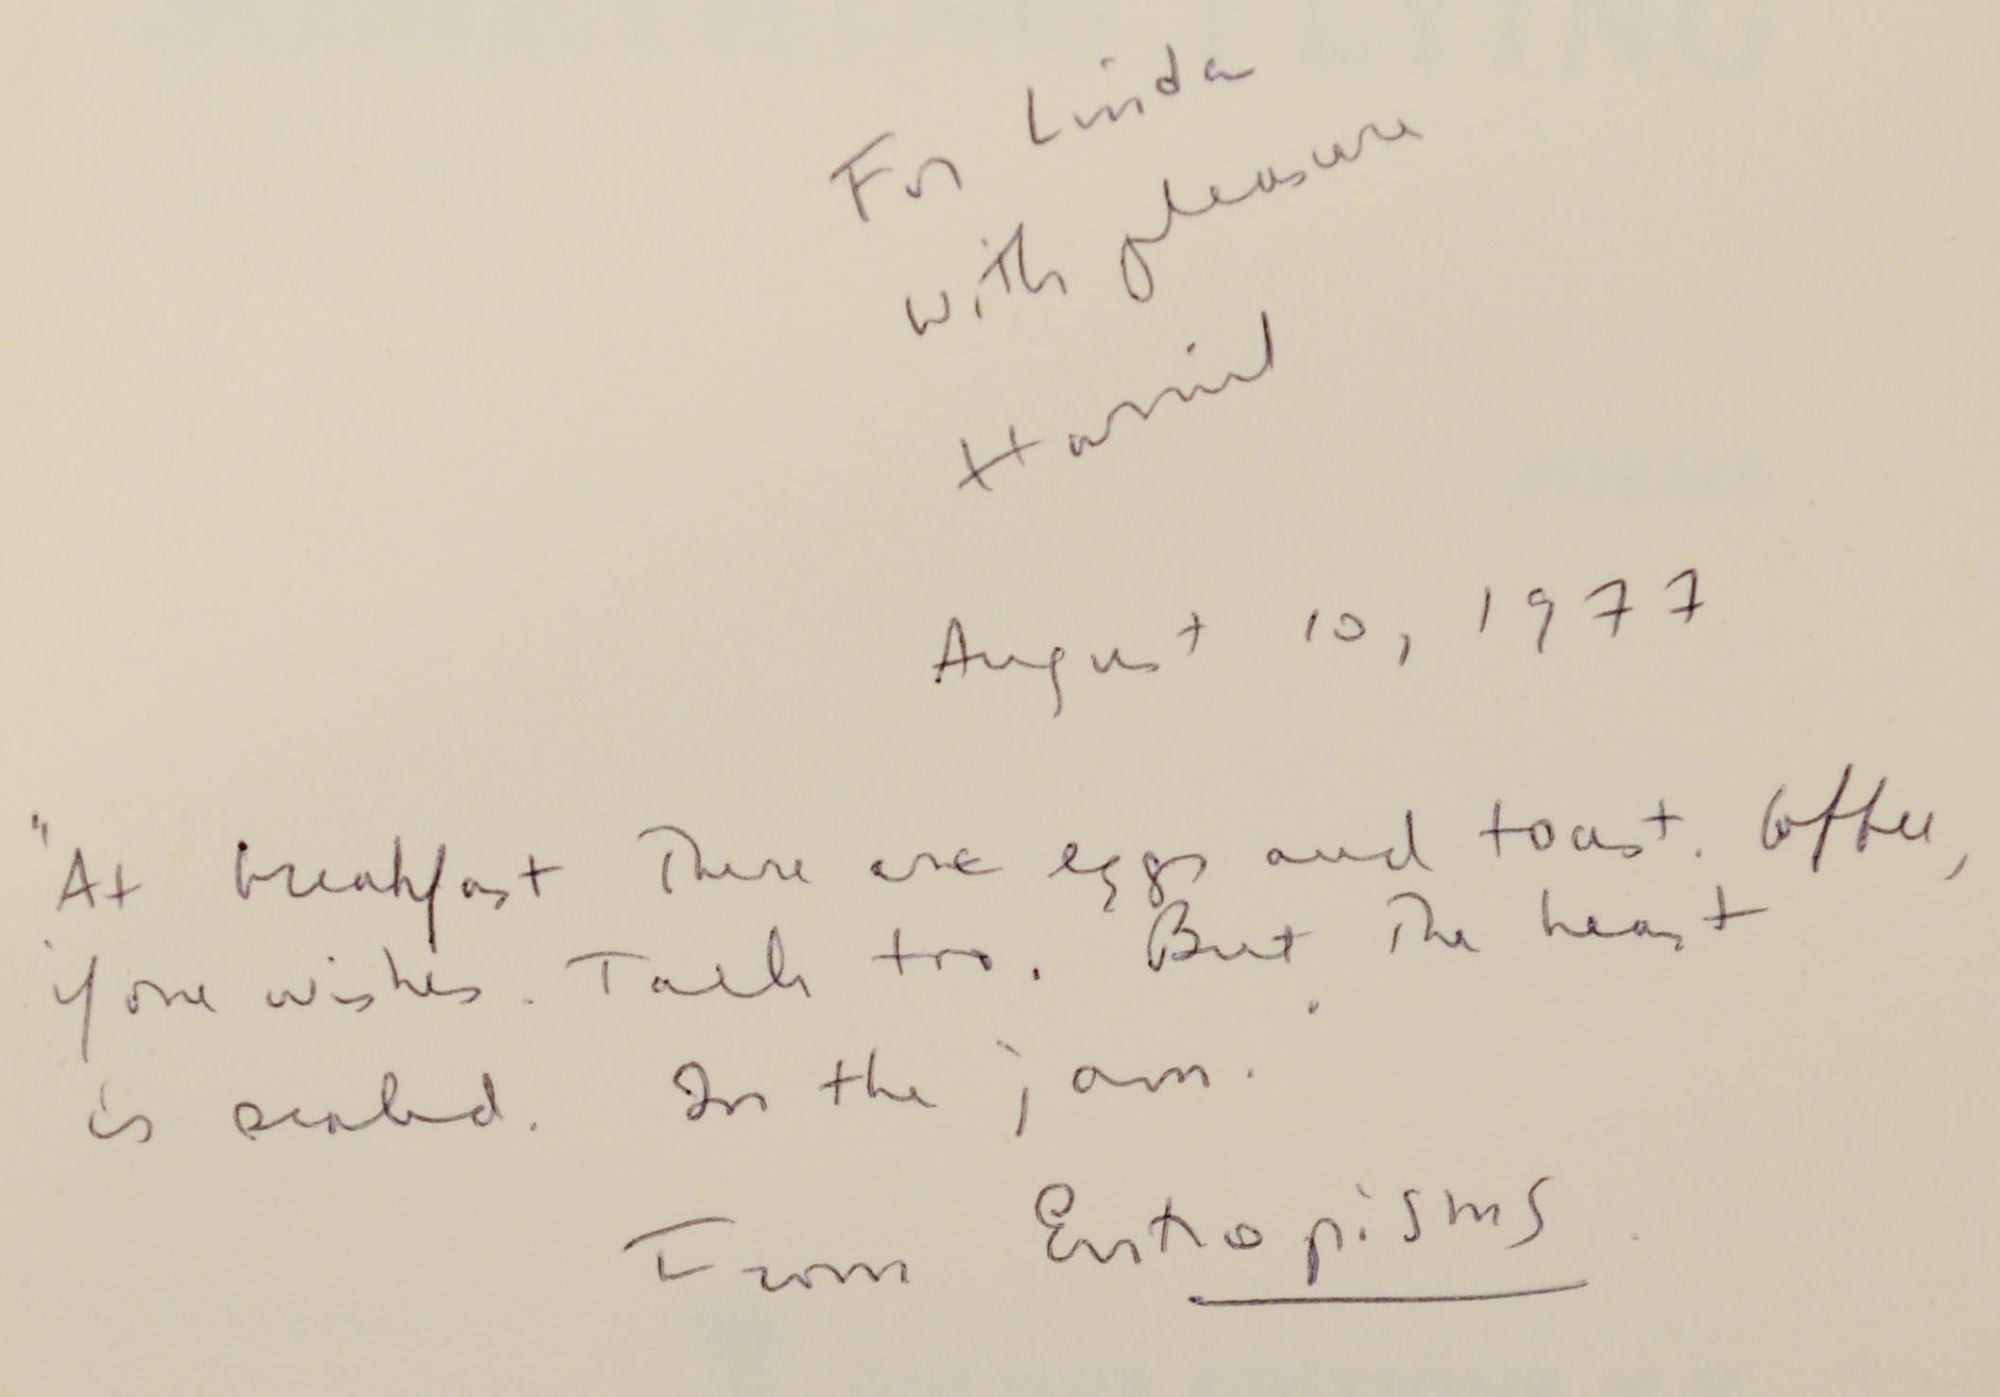 For Linda
with pleasure
Harriet
August 10, 1977
"At breakfast There are eggs and toast. Coffee,
if one wishes. Talk too. But The heart
is sealed. In the jam.
From Entropisms